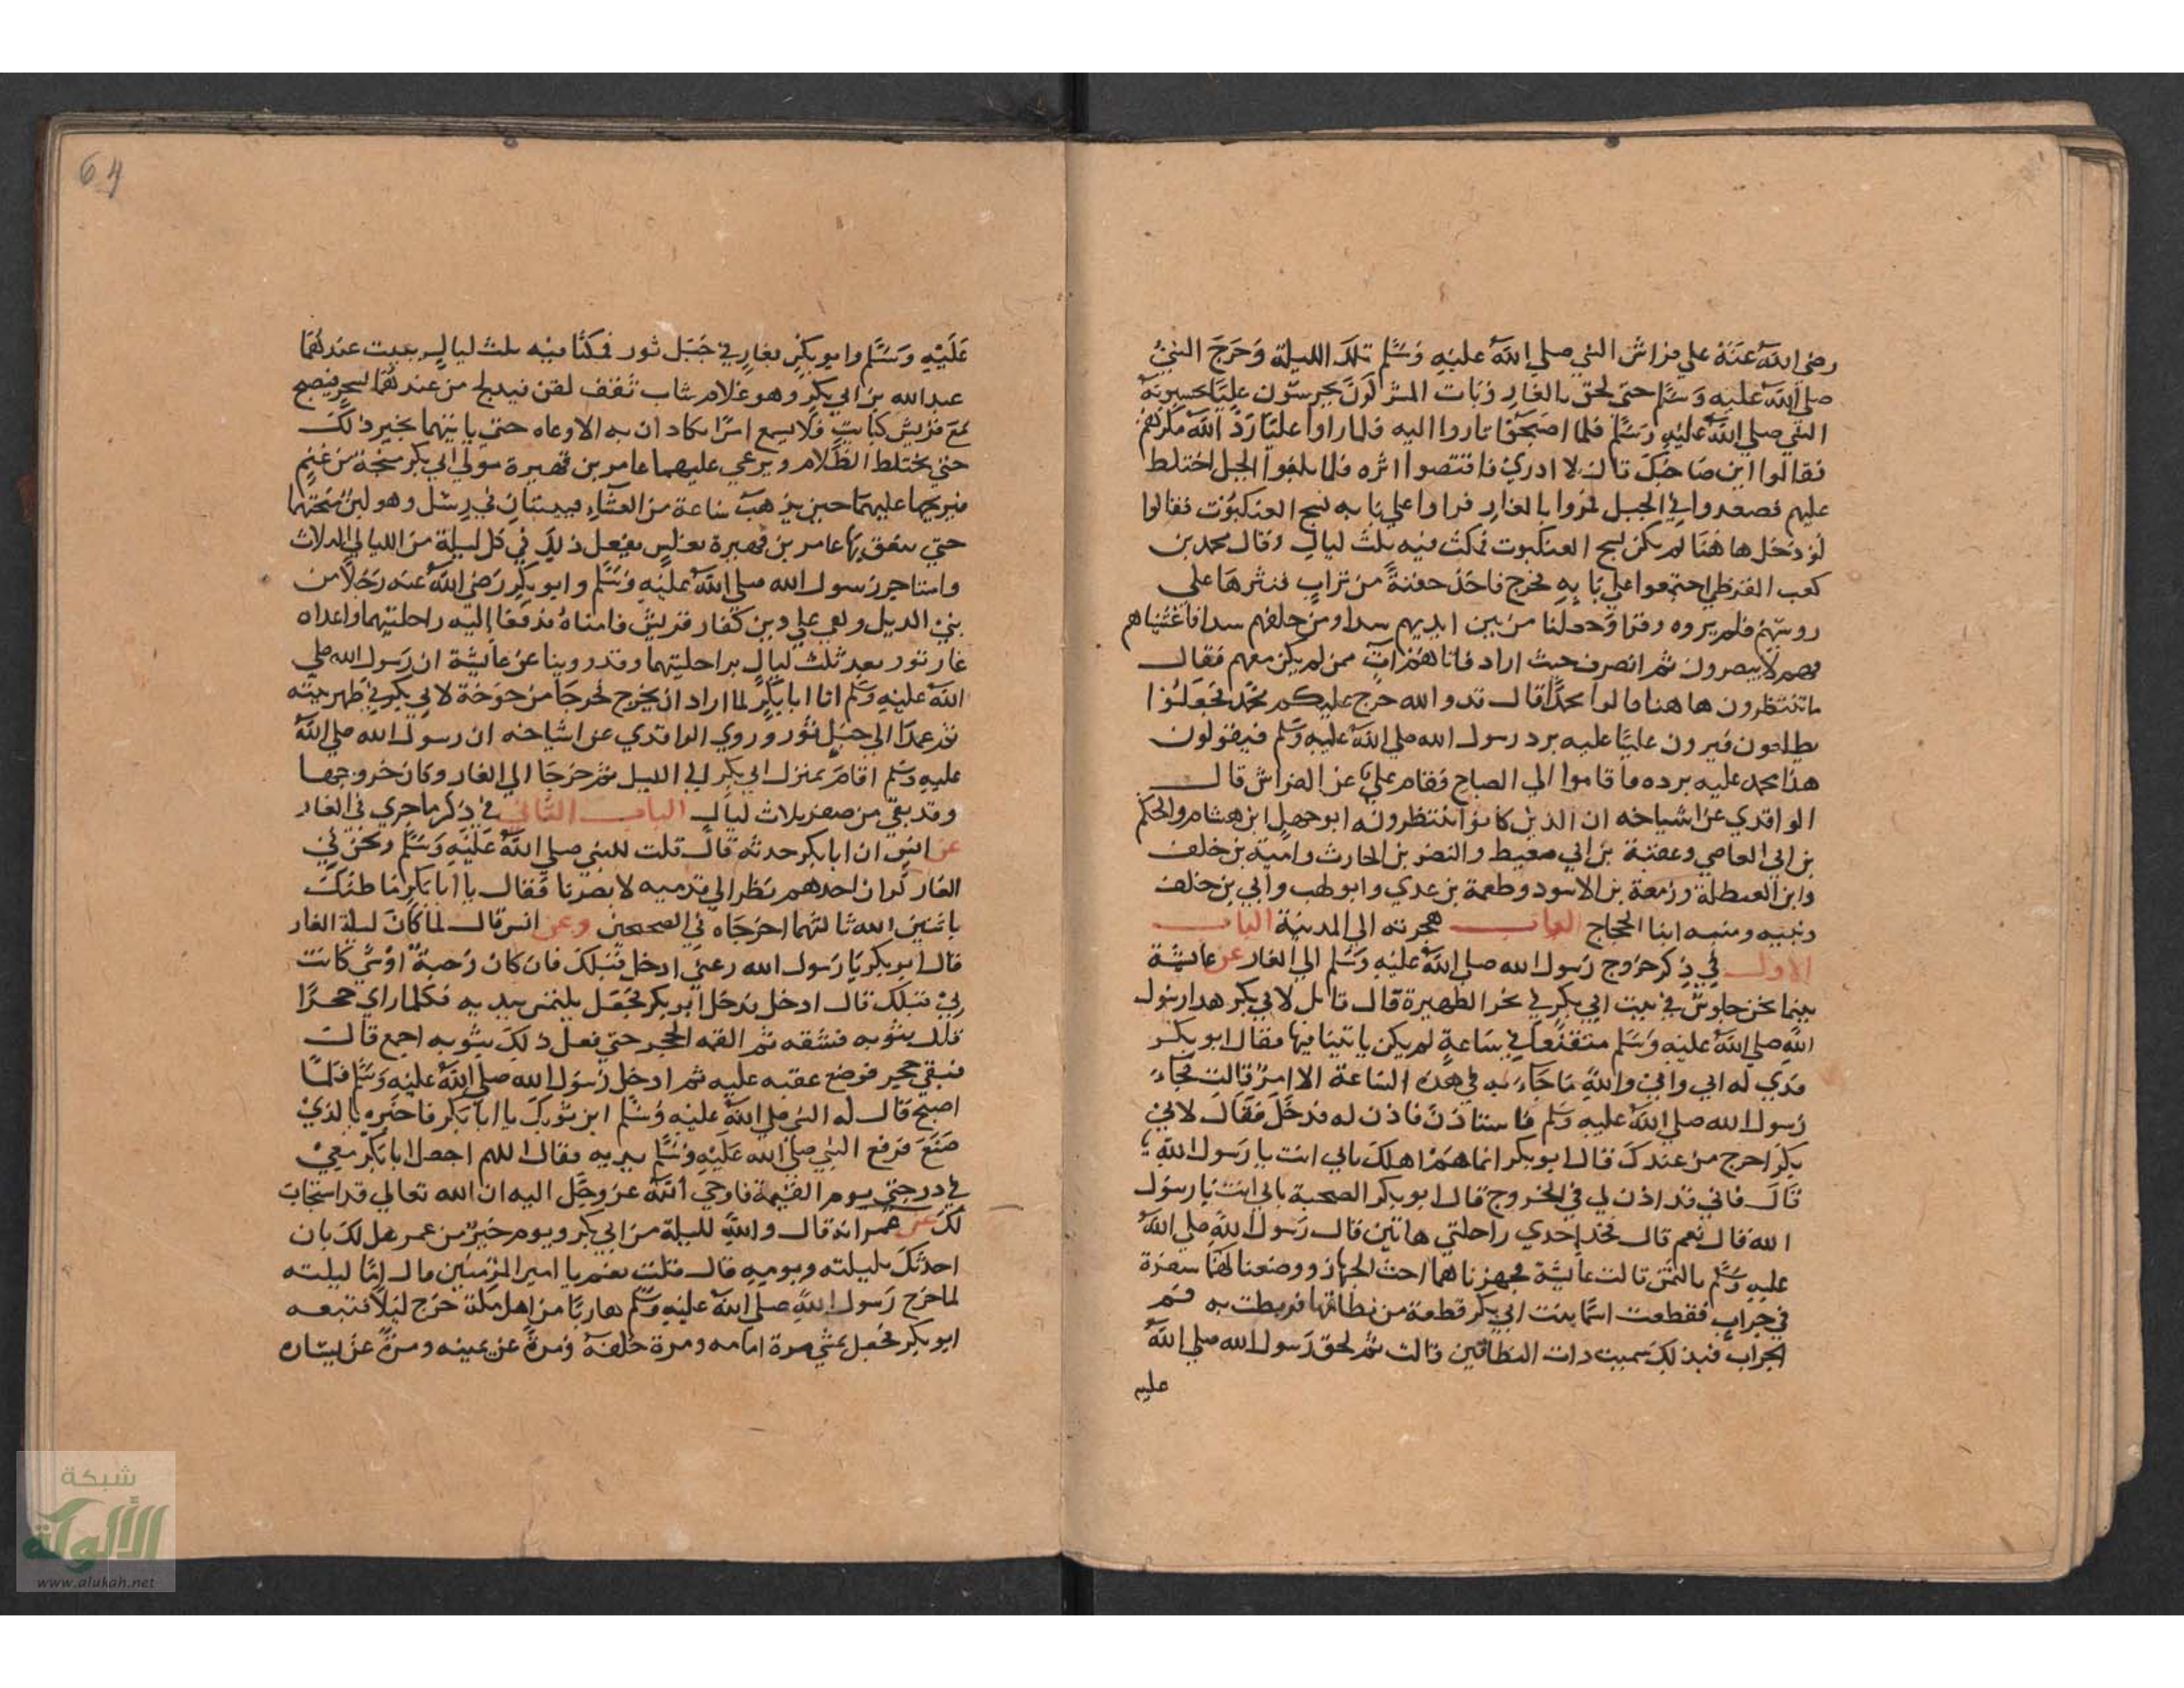 رضي الله عنه علي فراش النبي صلي الله عليه وسلم تلك الليلة وخرج النبي
صلي الله عليه وسلم حتي لحق بالغار وبات المشركون يحرسون عليا يحسبونه
النبي صلي الله عليه وسلم فلما اصبحوا ثاروا اليه فلما راوا عليا رد الله مكرهم
فقالوا اين صاحبك قال لا ادري فاقتصوا اثره فلما بلغوا الجبل اختلط
عليهم فصعدوا في الجبل فمروا بالغار فراوا علي بابه نسج العنكبوت فقالوا
لو دخل هاهنا لم يكن نسج العنكبوت فمكث فيه ثلث ليال وقال محمد بن
كعب القرظي اجتمعوا علي بابه فخرج فاخذ حفنة من تراب فنثرها علي
روسهم فلم يروه وقرا وجعلنا من بين ايديهم سدا ومن خلفهم سدا فاغشيناهم
فهم لا يبصرون ثم انصرف حيث اراد فاتاهم ات ممن لم يكن معهم فقال
ما تنتظرون هاهنا قالوا محمدا قال قد والله خرج عليكم محمد فجعلوا
يطلعون فيرون عليا عليه برد رسول الله صلي الله عليه وسلم فيقولون
هذا محمد عليه برده فما قاموا الي الصباح فقام علي عن الفراش قال
الواقدي عن اشياخه ان الذين كانوا ينتظرونه ابو جهل ابن هشام والحكم
بن ابي العاصي وعقبة بن ابي معيط والنضر بن الحارث وامية بن خلف
وابن العيطلة وزمعة بن الاسود وطعمة بن عدي وابو لهب وابي بن خلف
ونبيه ومنبه ابنا الحجاج ابواب هجرته الي المدينة الباب
الاول في ذكر خروج رسول الله صلي الله عليه وسلم الي الغار عن عائشة
بينما نحن جلوس في بيت ابي بكر في نحر الظهيرة قال قائل لابي بكر هذا رسول
الله صلي الله عليه وسلم متقنعا في ساعة لم يكن ياتينا فيها فقال ابو بكر
فدي له ابي وامي والله ما جاء به في هذه الساعة الا امر قالت فجاء
رسول الله صلي الله عليه وسلم فاستاذن فاذن له فدخل فقال لابي
بكر اخرج من عندك قال ابو بكر انما هم اهلك بابي انت يا رسول الله
قال فاني قد اذن لي في الخروج قال ابو بكر الصحبة بابي انت يا رسول
الله قال نعم قال فخذ احدي راحلتي هاتين قال رسول الله صلي الله
عليه وسلم بالثمن قالت عائشة فجهزناهما احث الجهاز ووضعنا لهما سفرة
في جراب فقطعت اسما بنت ابي بكر قطعة من نطاقها فربطت به فم
الجراب فبذلك سميت ذات النطاقين قالت ثم لحق رسول الله صلي الله
عليه
64
عليه وسلم وابو بكر بغار في جبل ثور فمكثا فيه ثلث ليال يبيت عندهما
عبد الله بن ابي بكر وهو غلام شاب ثقف لقن فيدلج من عندهما بسحر فيصبح
مع قريش كبايت فلا يسمع امرا يكادان به الا وعاه حتي ياتيهما بخبر ذلك
حتي يختلط الظلام ويرعي عليهما عامر بن فهيرة مولي ابي بكر منحة من غنم
فيريحها عليهما حين يذهب ساعة من العشاء فيبيتان في رسل وهو لبن منحتهما
حتي ينعق بها عامر بن فهيرة بغلس يفعل ذلك في كل ليلة من الليالي الثلاث
واستاجر رسول الله صلي الله عليه وسلم وابو بكر رضي الله عنه رجلا من
بني الديل وهو علي دين كفار قريش فامناه فدفعا اليه راحلتيهما واعداه
غار ثور بعد ثلث ليال براحلتيهما وقد روينا عن عايشة ان رسول الله صلي
الله عليه وسلم اتا ابا بكر لما اراد ان يخرج فخرجا من خوخة لابي بكر في ظهر بيته
ثم عمدا الي جبل ثور وروي الواقدي عن اشياخه ان رسول الله صلي الله
عليه وسلم اقام بمنزل ابي بكر الي الليل ثم خرجا الي الغار وكان خروجهما
وقد بقي من صفر ثلاث ليال الباب الثاني في ذكر ما جري في الغار
عن انس ان ابا بكر حدثه قال قلت للنبي صلي الله عليه وسلم ونحن في
الغار لو ان احدهم نظر الي قدميه لابصرنا فقال يا ابا بكر ما ظنك
باثنين الله ثالثهما اخرجاه في الصحيحين وعن انس قال لما كان ليلة الغار
قال ابو بكر يا رسول الله دعني ادخل قبلك فان كان حية او شي كانت
لي قبلك قال ادخل فدخل ابو بكر فجعل يلتمس بيديه فكلما راي جحرا
قال بثوبه فشقه ثم القمه الجحر حتي فعل ذلك بثوبه اجمع قال
فبقي جحر فوضع عقبه عليه ثم ادخل رسول الله صلي الله عليه وسلم فلما
اصبح قال له النبي صلي الله عليه وسلم اين ثوبك يا ابا بكر فاخبره بالذي
صنع فرفع النبي صلي الله عليه وسلم يديه فقال اللهم اجعل ابا بكر معي
في درجتي يوم القيمة فاوحي الله عز وجل اليه ان الله تعالي قد استجاب
لك عن عمر انه قال والله لليلة من ابي بكر ويوم خير من عمر هل لك بان
احدثك بليلته ويومه قال قلت نعم يا امير المؤمنين قال اما ليلته
لما خرج رسول الله صلي الله عليه وسلم هاربا من اهل مكة خرج ليلا فتبعه
ابو بكر فجعل يمشي مرة امامه ومرة خلفه ومرة عن يمينه ومرة عن يساره
شبكة
الألوكة
www.alukah.net